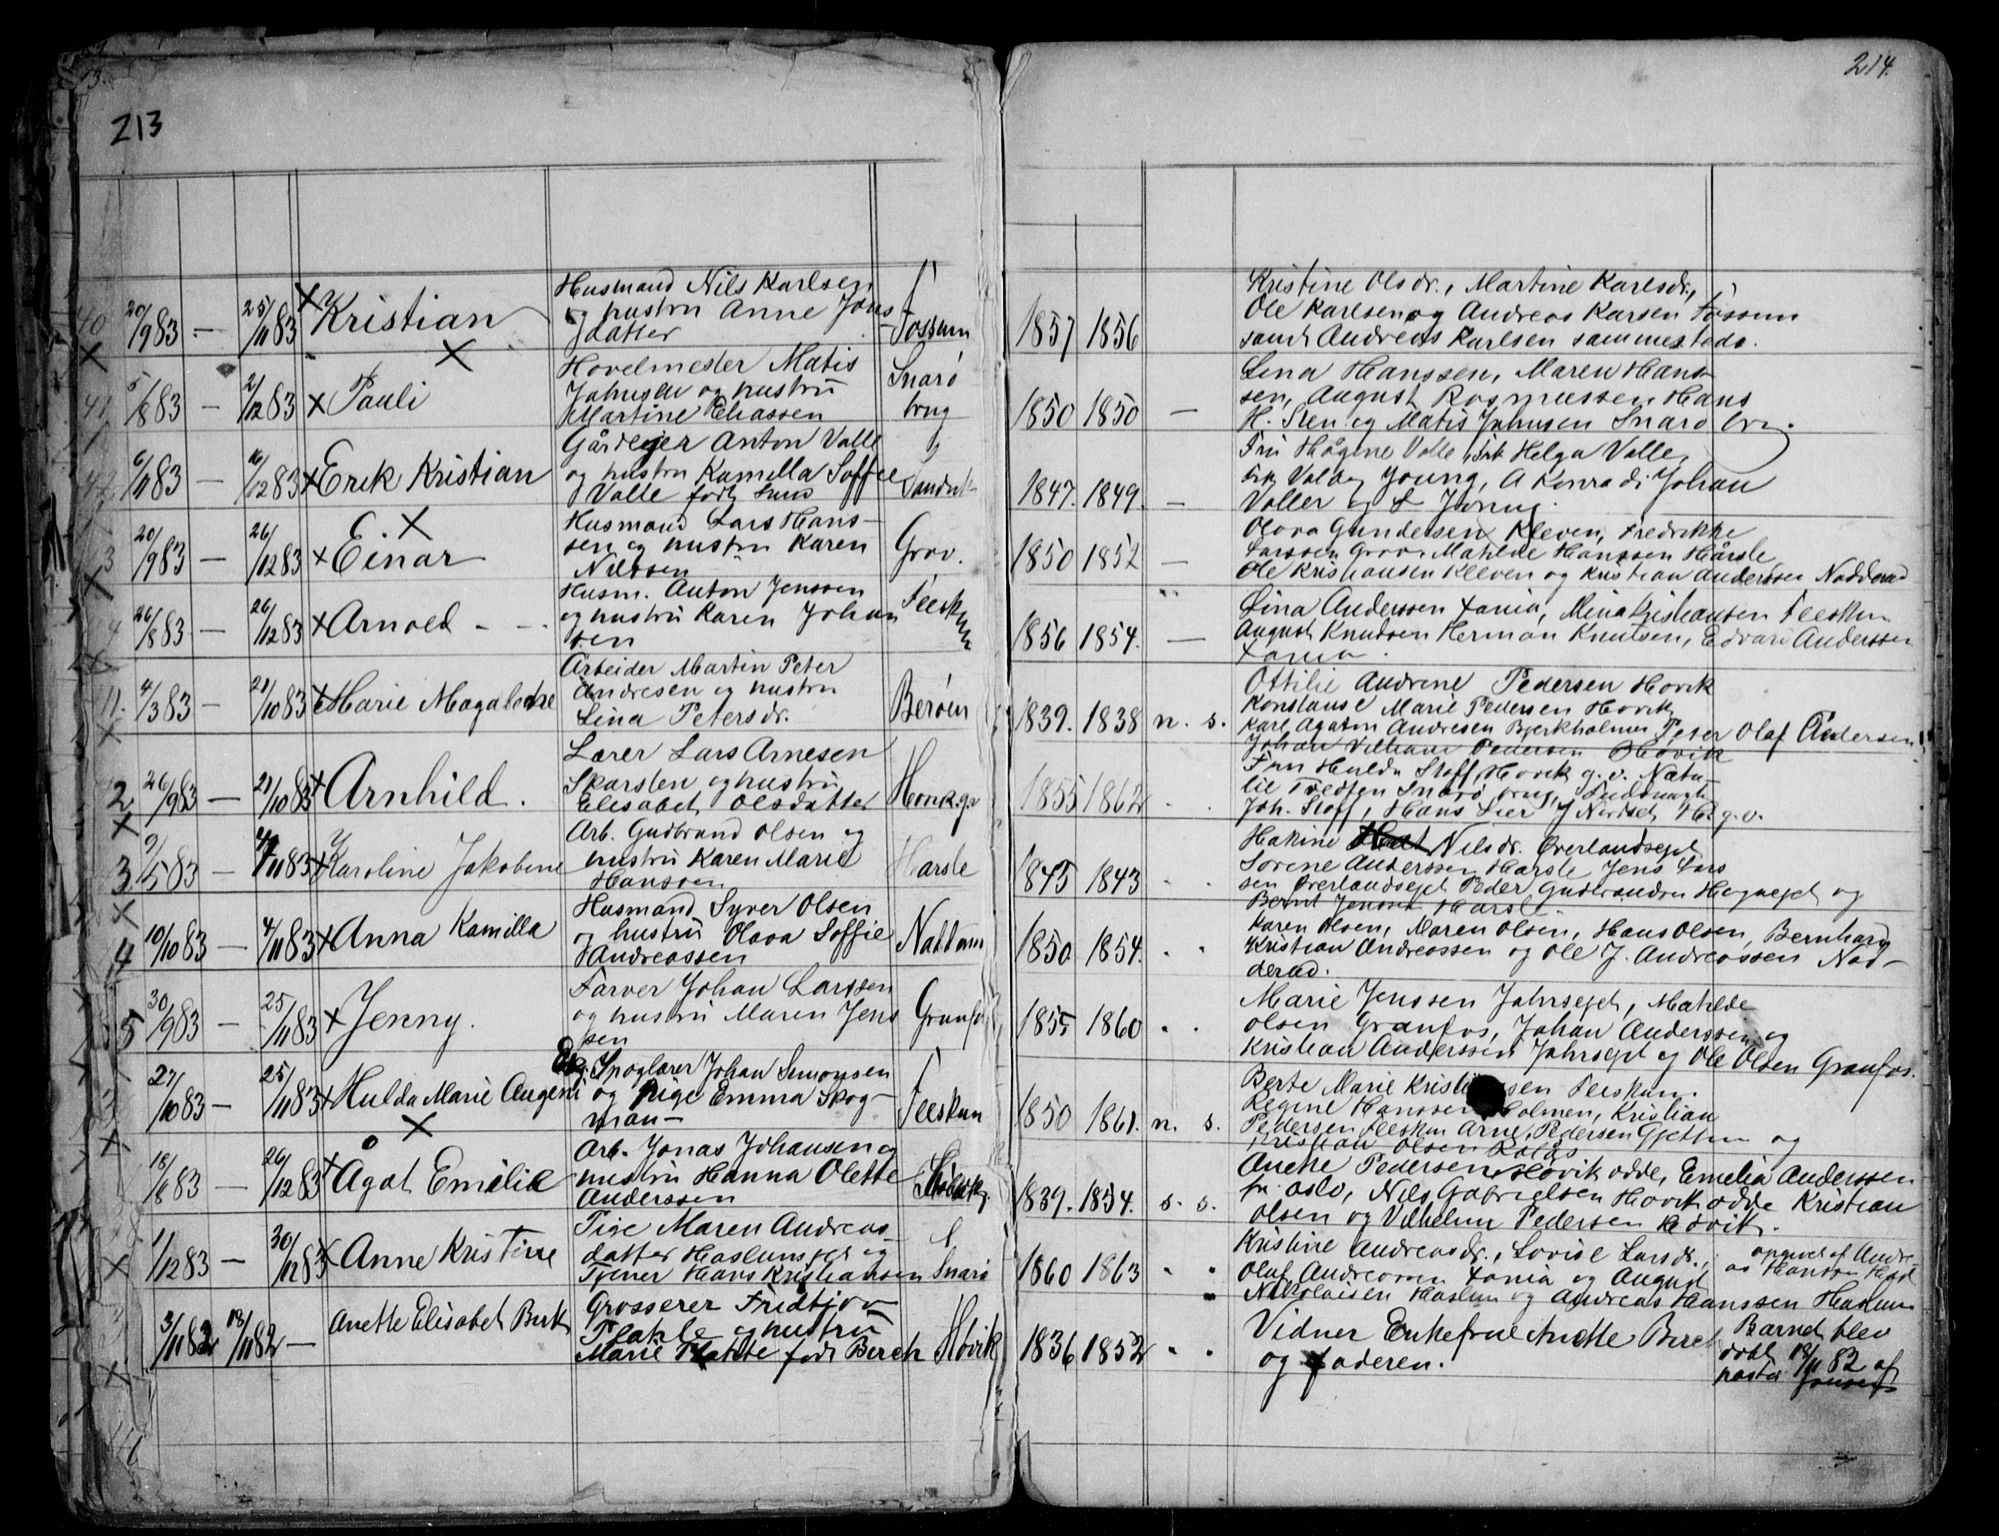 213
214.
40 20/9 83 — 25/11 83 Kristian
Husmand Nils Karlsen
og hustru Anne Jons
datter
Fossum
1857 1856
Kristine Olsdr., Martine Karlsdr.,
Ole Karlsen og Andreas Karsen Fossum
samt Andreas Karlsen sammesteds.
41 5/8 83 — 2/12 83 Pauli
Hovelmester Matis
Johnsen og hustru
Martine Eliassen
Snarø
brug
1850 1850 —
Lina Hanssen, Maren Hans
sen, August Rasmussen Hans
H. Sten og Matis Johnsen Snarø brug.
42 6/11 83 — 16/12 83 Erik Kristian
Gårdejer Anton Valle
og hustru Kamilla Soffie
Valle født
Sandvik
1847. 1849. —
Fru Hågine Valle, Frk Helga Valle,
Valbg Young, A Konradi Johan
Valler og L Young.
20/9 83 — 26/12 83 Einar
Husmand Lars Hans-
sen og hustru Karen
Nilssen
Grav.
1850 1852 —
Olava Gundersen Kleven, Fredrikke
Larssen Grav, Matilde Hanssen Hårsle
Ole Kristiansen Kleven og Kristian Anderssen Nadderud
26/8 83 — 26/12 83 Arnold - -
Husm. Anton Jenssen
og hustru Karen Johan
sen
Feeskum
1856 1854. —
Lina Anderssen Fania, Mina Kristiansen Feeskum
August Knudsen Herman Knutsen, Edvard Anderssen
Fania.
4/3 83 — 21/10 83 Marie Magalene
Arbeider Martin Peter
Andresen og hustru
Lina Petersdr.
Berøen
1839. 1838 n. s.
Ottilie Andrine Pedersen Høvik
Konstanse Marie Pedersen Høvik
Karl Agaton Andresen Bjerkholmen Peter Olaf Andersen
Johan Vilhelm Pedersen Høvik
2 26/9 83 — 21/10 83 Arnhild.
Lærer Lars Arnesen
Skarsten og hustru
Elisabet Olsdatter
1855 1862 " "
Fru Hulda Stoff, Høvik g. v. Natu-
lie Tvedten Snarø brug,
Joh. Stoff, Hans Lier, J Nordset H. g. v.
3 9/5 83 — 4/11 83 Karoline Jakobine
Arb. Gudbrand Olsen og
hustru Karen Marie
Hanssen
Harsle
1845 1843 " "
Hakine Nilsdr. Øverlandseget
Sørene Anderssen Harsle Jens Lars
sen Øverlandseget Peder Gudbrandsen Hageeget og
Bernt Jenssen Harsle.
4 10/10 83 — 4/11 83 Anna Kamilla
Husmand Syver Olsen
og hustru Olava Soffie
Andreassen
1850 1854. " "
Karen Olsen, Maren Olsen, Hans Olsen, Bernhard
Kristian Andreassen og Ole J. Andreassen Nad-
derud.
5 30/9 83 — 25/11 83 Jenny.
Farver Johan Larssen
og hustru Maren Jens
sen
Granfos
1855 1860 " "
Marie Jenssen Jahrseget, Matilde
Olsen Granfos, Johan Anderssen og
Kristian Anderssen Jahrseget og Ole Olsen Granfos.
27/10 83 — 25/11 83 Hulda Marie Augeni
Snoglærer Johan Simonsen
og Pige Emma Skog-
man —
Feeskum
1850 1861. n. s.
Berte Marie Kristiansen Feeskum.
Regine Hanssen Holmen, Kristian
Pedersen Feeskum Arne Pedersen Gjettum og
Kristian Olsen
18/6 83 — 26/12 83 Ågot Emilie
Arb. Jonas Johansen og
hustru Hanna Olette
Anderssen
1839. 1854. s. s.
Anette Pedersen Høvikodde, Emelia Anderssen
fr. Oslo, Nils Gabrielsen Høvikodde Kristian
Olsen og Vilhelm Pedersen Høvik.
1/12 83 — 30/12 83 Anne Kristine
Pige Maren Andreas-
datter Haslumseget og
Tjener Hans Kristiansen
Snarø
1860 1863 " "
Kristine Andreasdr., Lovise Larsdr.,
Olaf Andreassen Fania og August
Nikolaisen Haslum og Andreas Hanssen Haslum
opgivet af Andre-
as Hanssen
3/11 82 18/11 82 — Anette Elisabet Birk
Grosserer Fridtjov
Plahte og hustru
Marie Plahte født Berch
Høvik
1836 1852 " "
Vidner Enkefrue Anette Berch
og faderen.
Barnet blev
døbt 18/11 82 af
pastor Jonssen